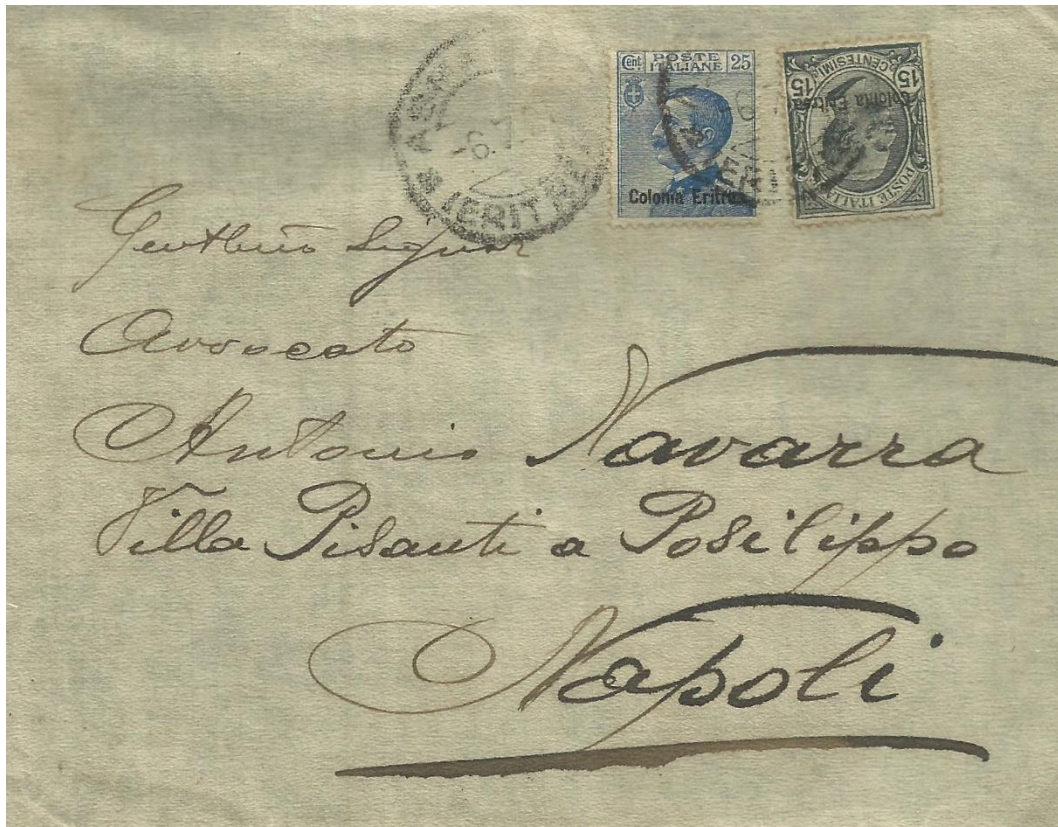 Cent. POSTE ITALIANE 25
Colonia Eritrea
15 CENTESIMI 15
Colonia Eritrea
POSTE ITALIA
ASM
-6.7
(ERITREA
ER
Signor
Avvocato
Antonio Navarra
Villa Pisanti a Posilippo
Napoli